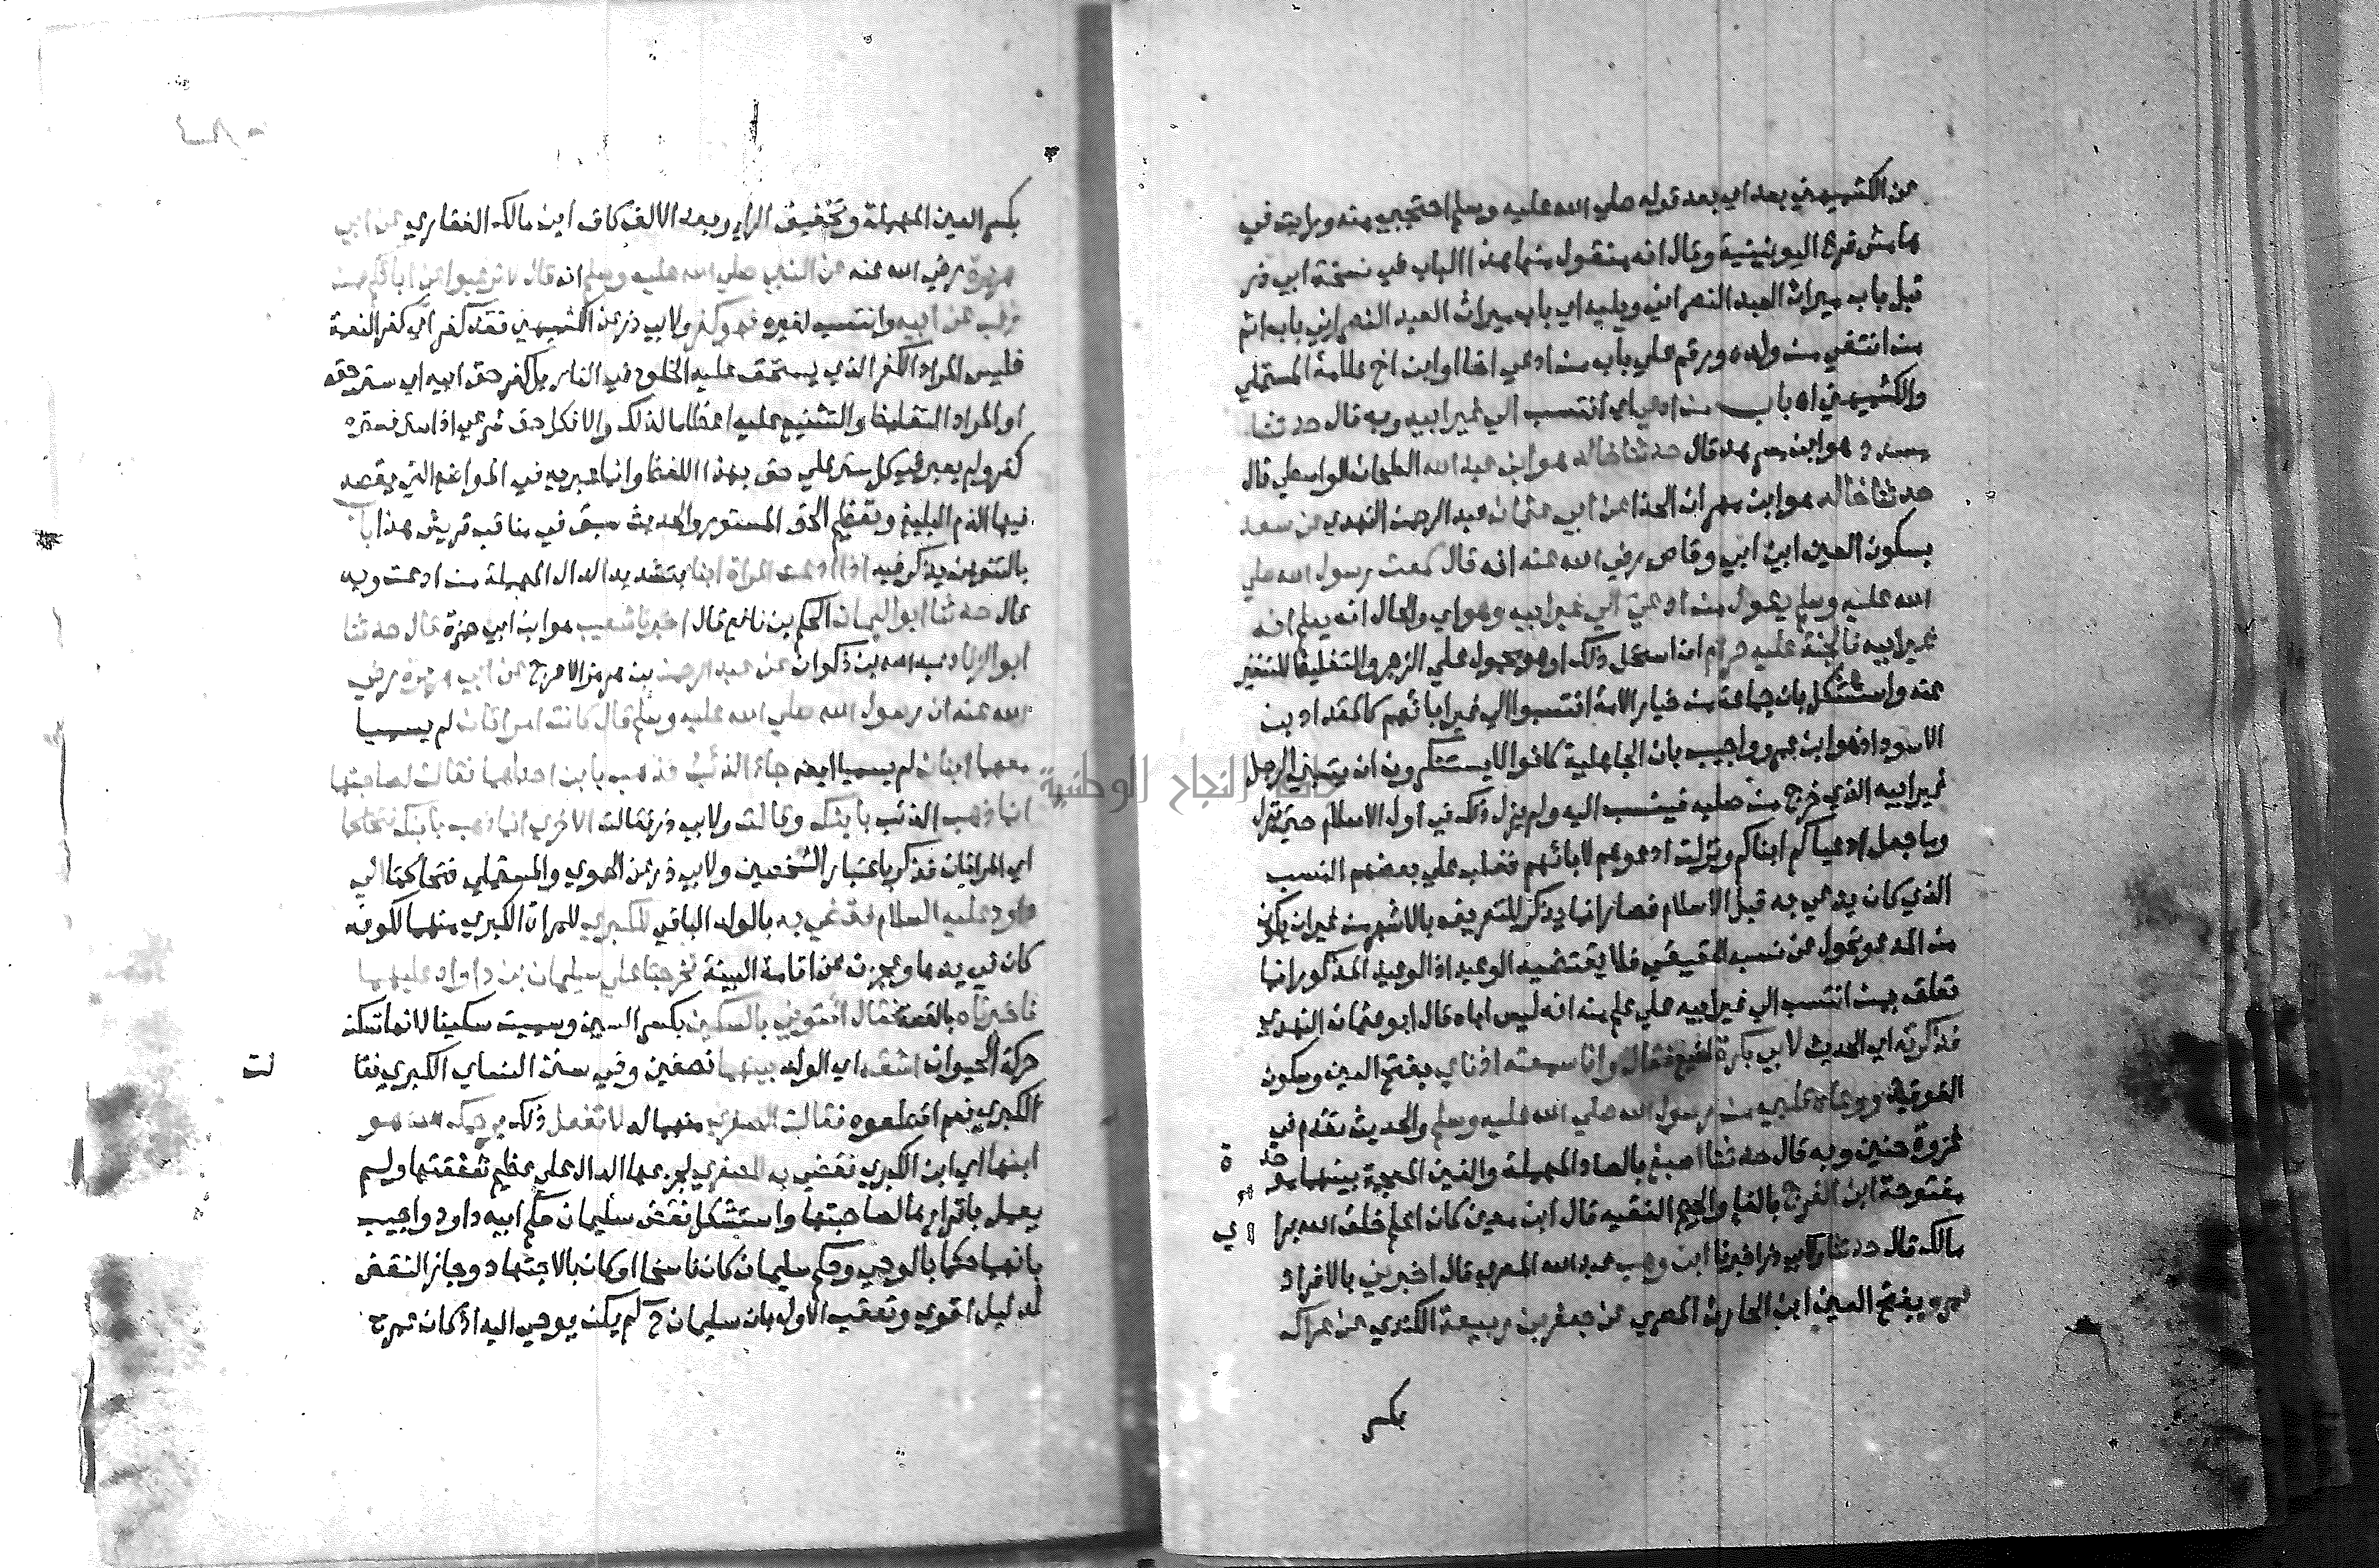 عن الكشميهني بعد اي بعد قوله صلي الله عليه وسلم احتجبي منه ورايت في
هامش فرع اليونينية وقال انه منقول منها هذا الباب في نسخة ابي ذر
قبل باب ميراث العبد النصراني ويليه اي باب ميراث العبد النصراني باب اثم
من انتفي من ولده ورقم علي باب من ادعي اخا او ابن اخ علامة المستملي
والكشميهني اه باب من ادعي اي انتسب الي غير ابيه وبه قال حدثنا
مسدد هو ابن مسرهد قال حدثنا خالد هو ابن عبد الله الطحان الواسطي قال
حدثنا خالد هو ابن مهران الحذا عن ابي عثمان عبد الرحمن النهدي عن سعد
بسكون العين ابن ابي وقاص رضي الله عنه انه قال سمعت رسول الله صلي
الله عليه وسلم يقول من ادعي الي غير ابيه وهو اي والحال انه يعلم انه
غير ابيه فالجنة عليه حرام ان استحل ذلك او هو محمول علي الزجر والتغليظ للتنفير
عنه واستشكل بان جماعة من خيار الامة انتسبوا الي غير ابائهم كالمقداد بن
الاسود اذ هو ابن عمرو واجيب بان الجاهلية كانوا لا يستنكرون ان يتبني الرجل
غير ابيه الذي خرج من صلبه فينسب اليه ولم يزل ذلك في اول الاسلام حتي نزل
وما جعل ادعياكم ابناكم ونزلت ادعوهم لابائهم فغلب علي بعضهم النسب
الذي كان يدعي به قبل الاسلام فصار انما يذكر للتعريف بالاشهر من غير ان يكون
من المدعو تحول عن نسبه الحقيقي فلا يقتضيه الوعيد اذ الوعيد المذكور انما
تعلق بمن انتسب الي غير ابيه علي علم منه انه ليس اباه قال ابو عثمان النهدي
فذكرته اي الحديث لابي بكرة نفيع فقال وانا سمعته اذناي بفتح العين وسكون
الفوقية ووعاه قلبي من رسول الله صلي الله عليه وسلم والحديث تقدم في
غزوة حنين وبه قال حدثنا اصبغ بالصاد المهملة والغين المعجمة بينهما موحدة
مفتوحة ابن الفرج بالفا والجيم الفقيه قال ابن معين كان اعلم خلق الله براي
مالك قال حدثنا ولابي ذر اخبرنا ابن وهب عبد الله المصري قال اخبرني بالافراد
عمرو بفتح العين ابن الحارث المصري عن جعفر بن ربيعة الكندي عن عراك
بكسر
بكسر العين المهملة وتخفيف الراي وبعد الالف كاف ابن مالك الغفاري عن ابي
هريرة رضي الله عنه عن النبي صلي الله عليه وسلم انه قال لا ترغبوا عن ابائكم فمن
رغب عن ابيه وانتسب لغيره فهو كفر ولابي ذر عن الكشميهني فقد كفر اي كفر النعمة
فليس المراد الكفر الذي يستحق عليه الخلود في النار بل كفر حق ابيه اي ستر حقه
او المراد التغليظ والتشنيع عليه اعظاما لذلك والا فكل حق شرعي اذا ستر فستره
كفر ولم يعبر في كل ستر علي حق بهذا اللفظ وانما عبر به في المواضع التي يقصد
فيها الذم البليغ وتعظيم الحق المستور والحديث سبق في مناقب قريش هذا باب
بالتنوين يذكر فيه اذا ادعت المراة ابنا بتشديد الدال المهملة من ادعت وبه
قال حدثنا ابو اليمان الحكم بن نافع قال اخبرنا شعيب هو ابن ابي حمزة قال حدثنا
ابو الزناد عبد الله بن ذكوان عن عبد الرحمن بن هرمز الاعرج عن ابي هريرة رضي
الله عنه ان رسول الله صلي الله عليه وسلم قال كانت امراتان لم يسميا
معهما ابنان لم يسميا ايضا جاء الذئب فذهب بابن احداهما فقالت لصاحبتها
انما ذهب الذئب بابنك وقالت ولابي ذر فقالت الاخري انما ذهب بابنك فتحاكما
اي المراتان فذكر باعتبار الشخصين ولابي ذر عن الحموي والمستملي فتحاكمتا الي
داود عليه السلام فقضي به بالولد الباقي للكبري للمراة الكبري منهما لكونه
كان في يدها وعجزت عن اقامة البينة فخرجتا علي سليمان بن داود عليهما
فاخبرتاه بالقصة فقال ائتوني بالسكين بكسر السين وسميت سكينا لانها تسكن
حركة الحيوان اشقه اي الولد بينهما نصفين وفي سنن النساي الكبري فقالت
الكبري نعم اقطعوه فقالت الصغري منهما له لا تفعل ذلك يرحمك الله هو
ابنها اي ابن الكبري فقضي به للصغري لجزعها الدال علي عظيم شفقتها ولم
يعمل باقرارها لصاحبتها واستشكل نقض سليمان حكم ابيه داود واجيب
بانهما حكما بالوحي وحكم سليمان كان ناسخا او كان بالاجتهاد وجاز النقض
لدليل اقوي وتعقب الاول بان سليمان ح لم يكن يوحي اليه اذ كان عمره